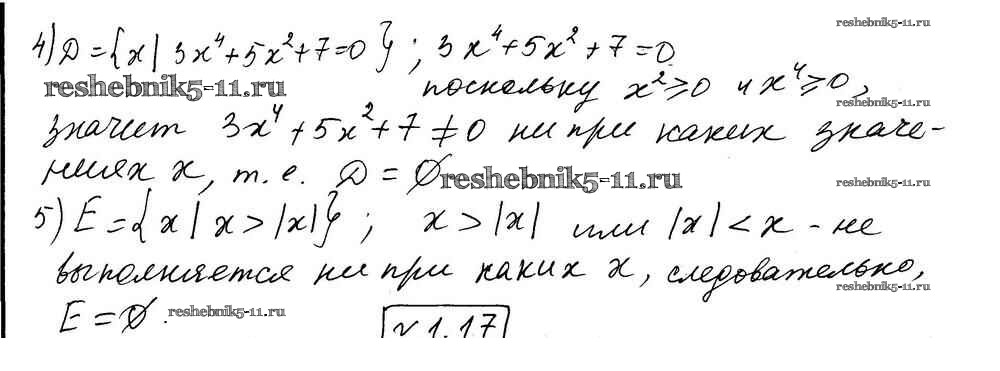 reshebnik5-11.ru
4) D = {x | 3x⁴ + 5x² + 7 = 0}; 3x⁴ + 5x² + 7 = 0.
reshebnik5-11.ru поскольку x² ⩾ 0 и x⁴ ⩾ 0,
reshebnik5-11.ru
значит 3x⁴ + 5x² + 7 ≠ 0 ни при каких значе-
ниях x, т. е. D = ∅ reshebnik5-11.ru
reshebnik5-11.ru
5) E = {x | x > |x|}; x > |x| или |x| < x - не
выполняется ни при каких x, следовательно,
reshebnik5-11.ru
E = ∅. reshebnik5-11.ru
№ 1.17